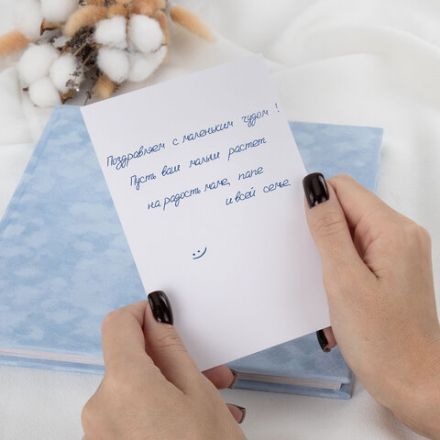 Поздравляем с маленьким чудом!
Пусть ваш малыш растет
на радость маме, папе
и всей семье
:)